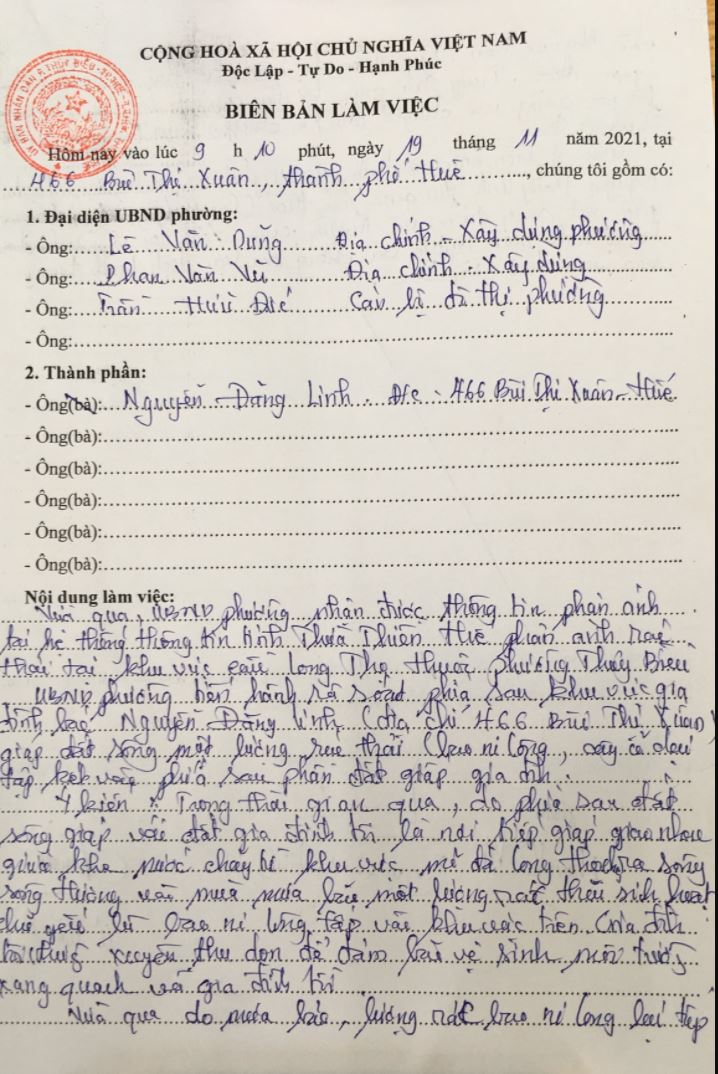 CỘNG HOÀ XÃ HỘI CHỦ NGHĨA VIỆT NAM
Độc Lập - Tự Do - Hạnh Phúc
BIÊN BẢN LÀM VIỆC
Hôm nay vào lúc 9 h 10 phút, ngày 19 tháng 11 năm 2021, tại
466 Bùi Thị Xuân, thành phố Huế, chúng tôi gồm có:
1. Đại diện UBND phường:
- Ông: Lê Văn Dũng Địa chính - Xây dựng phường
- Ông: Phan Văn Vũ Địa chính - Xây dựng
- Ông: Trần Hữu Đề Cán bộ đô thị phường
- Ông:
2. Thành phần:
- Ông(bà): Nguyễn Đăng Linh - Đ/c - 466 Bùi Thị Xuân - Huế
- Ông(bà):
- Ông(bà):
- Ông(bà):
- Ông(bà):
- Ông(bà):
Nội dung làm việc:
Vừa qua, UBND phường nhận được thông tin phản ánh
tại hệ thống thông tin tỉnh Thừa Thiên Huế phản ánh rác
thải tại khu vực cầu Long Thọ thuộc phường Thủy Biều
UBND phường tiến hành rà soát phía sau khu vực gia
đình bác Nguyễn Đăng Linh (địa chỉ 466 Bùi Thị Xuân)
giáp đất sông một lượng rác thải (bao ni lông, cây cỏ
tập kết vào phía sau phần đất giáp gia đình.
Ý kiến: Trong thời gian qua, do phía sau đất
sông giáp với đất gia đình tôi là nơi tiếp giáp giao nhau
giữa khe nước chảy từ khu vực mỏ đá Long Thọ ra sông
sông Hương vào mùa mưa bão một lượng rác thải sinh hoạt
chủ yếu là bao ni lông tập vào khu vực trên. Gia đình
tôi thường xuyên thu dọn để đảm bảo vệ sinh môi trường
xung quanh và gia đình tôi
Vừa qua do mưa bão, lượng rác bao ni lông lại tiếp